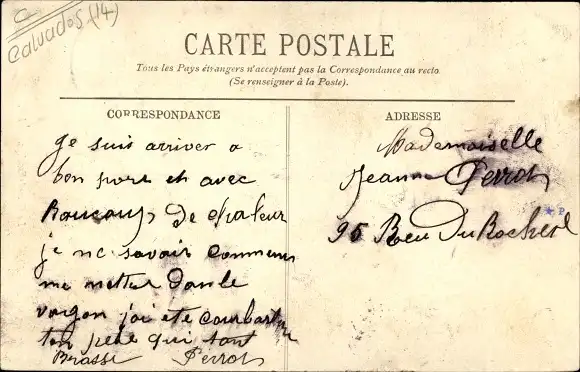 C
Calvados (14)
CARTE POSTALE
Tous les Pays étrangers n'acceptent pas la Correspondance au recto
(Se renseigner à la Poste).
CORRESPONDANCE
Je suis arriver a
bon pore et avec
Boucoup De chaleur
je ne savais commens
me metter Dans le
vagon j'ai ete
ton pere qui tant
Brasse Perrot
ADRESSE
Mademoiselle
Jeanne Perrot
95 Rue Du Rocher